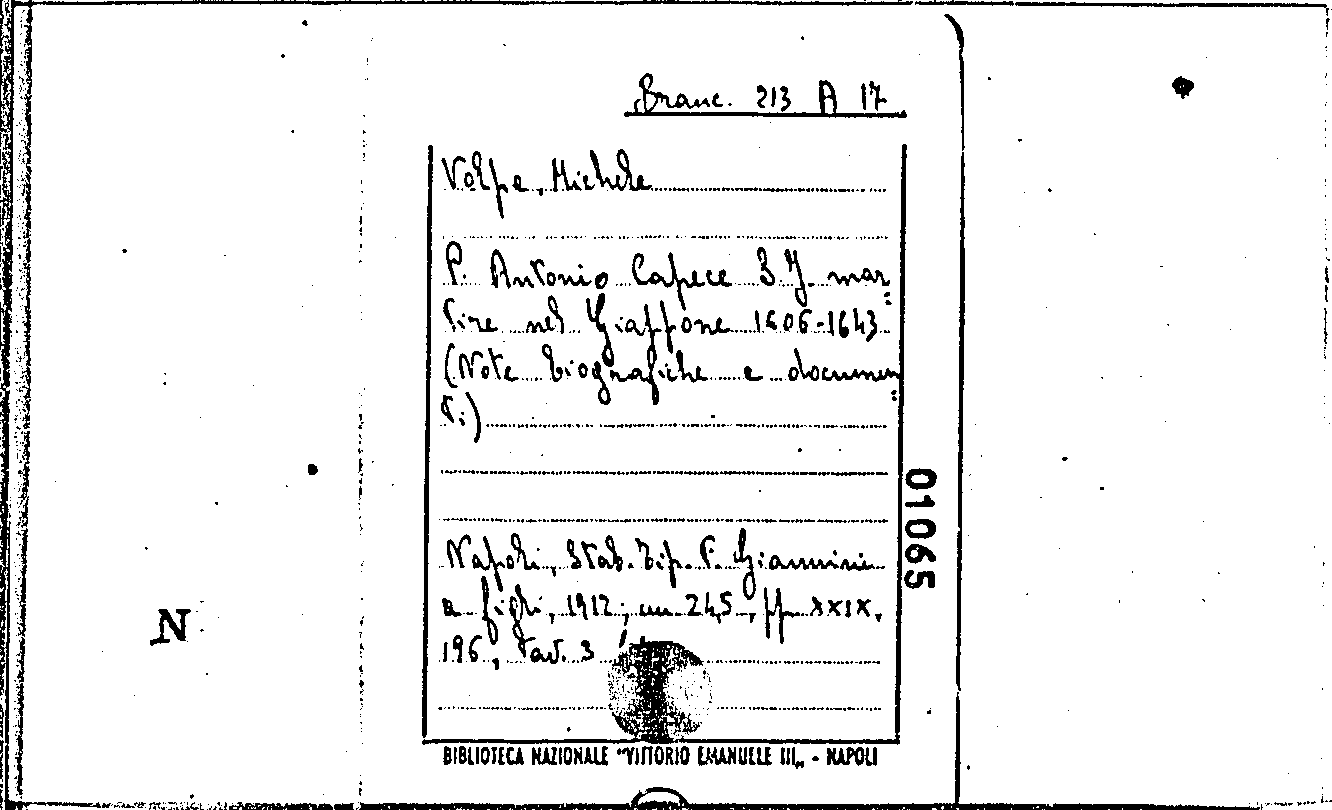 Branc. 213 A 17
Volpe, Michele
P. Antonio Capece S.J. mar=
tire nel Giappone 1606-1643
(Note biografiche e documen=
ti)
Napoli, Stab. Tip. F. Giannini
e figli, 1912, cm 24,5, pp. XXIX,
196, tav. 3
BIBLIOTECA NAZIONALE "VITTORIO EMANUELE III„ - NAPOLI
01065
N